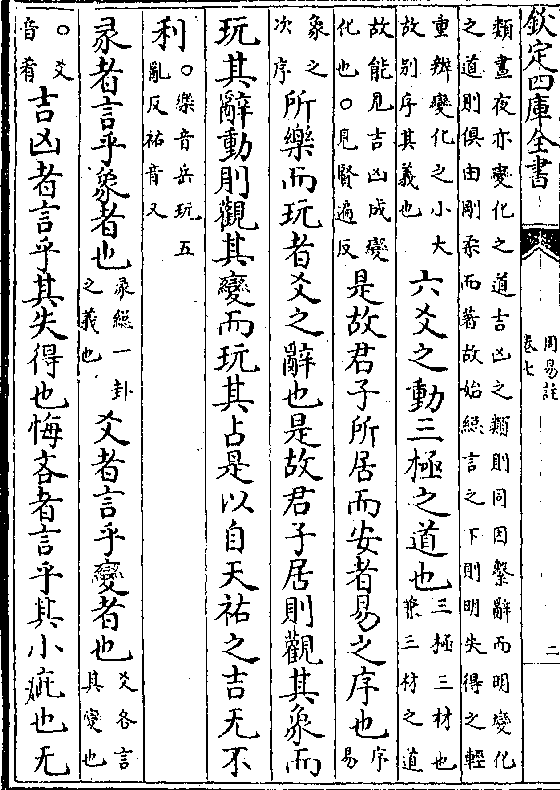 欽定四庫全書
周易註
卷七
二
類晝夜亦變化之道吉凶之類則同因繫辭而明變化
之道則俱由剛柔而著故始總言之下則明失得之輕
重辨變化之小大
故別序其義也
六爻之動三極之道也
三極三材也
兼三材之道
故能見吉凶成變
化也○見賢遍反
是故君子所居而安者易之序也
序易
象之
次序
所樂而玩者爻之辭也是故君子居則觀其象而
玩其辭動則觀其變而玩其占是以自天祐之吉无不
利
○樂音岳玩五
亂反祐音又
彖者言乎象者也
彖總一卦
之義也
爻者言乎變者也
爻各言
其變也
○爻
音肴
吉凶者言乎其失得也悔吝者言乎其小疵也无